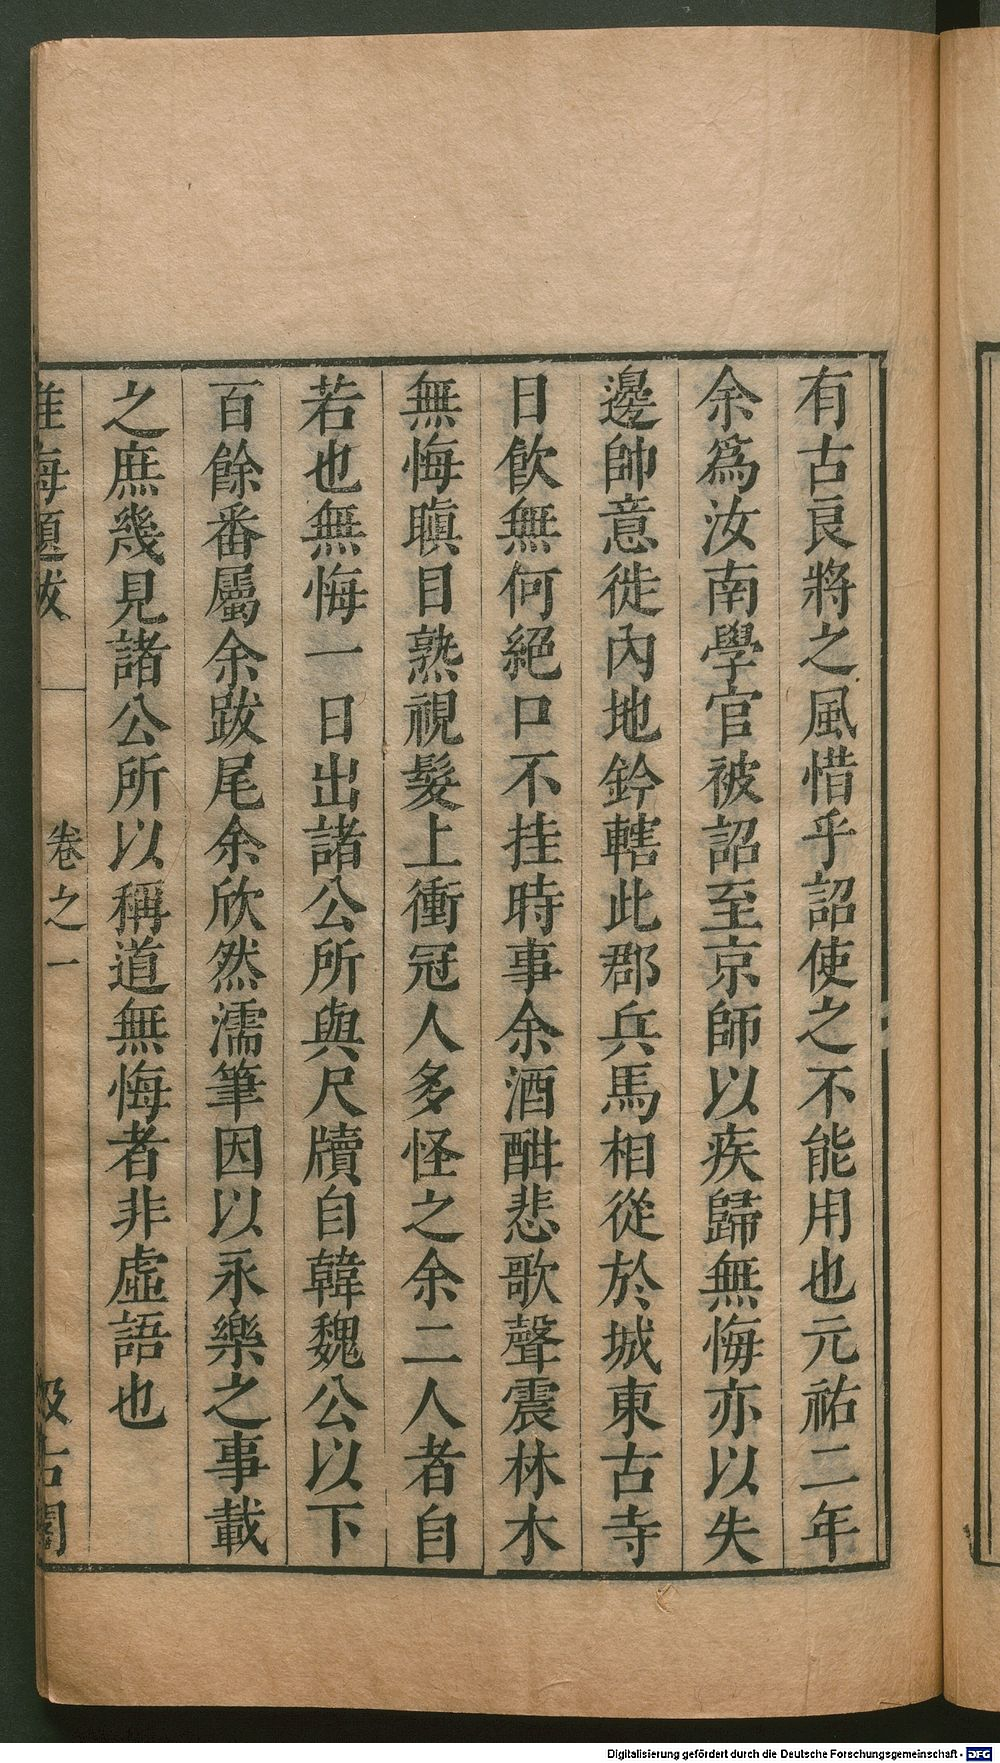 有古良將之風惜乎詔使之不能用也元祐二年
余爲汝南學官被詔至京師以疾歸無悔亦以失
邊帥意徙內地鈐轄此郡兵馬相從於城東古寺
日飲無何絕口不挂時事余酒酣悲歌聲震林木
無悔瞋目熟視髮上衝冠人多怪之余二人者自
若也無悔一日出諸公所與尺牘自韓魏公以下
百餘番屬余跋尾余欣然濡筆因以永樂之事載
之庶幾見諸公所以稱道無悔者非虛語也
淮海題跋 卷之一 汲古閣
Digitalisierung gefördert durch die Deutsche Forschungsgemeinschaft - DFG